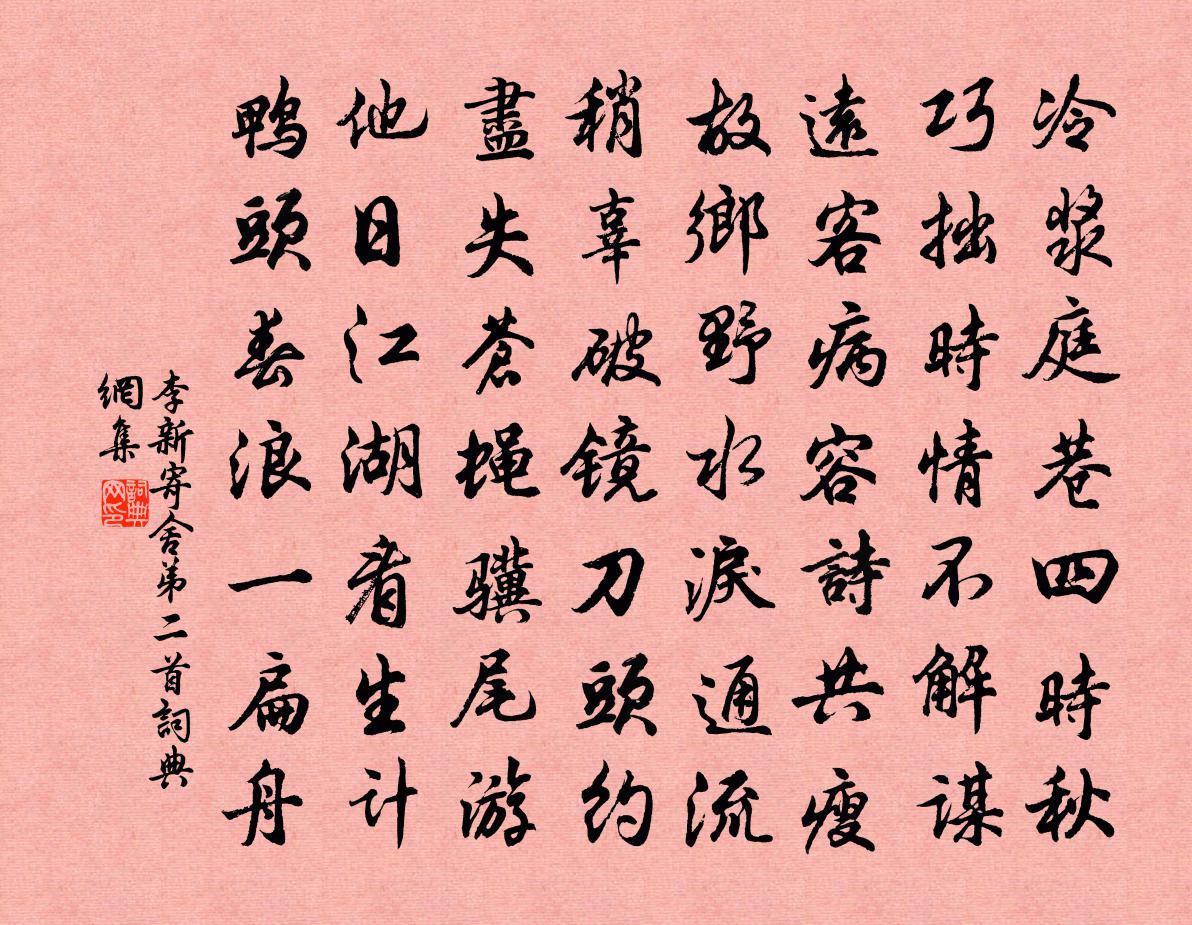 冷漿庭巷四時秋
巧拙時情不解謀
遠客病容詩共瘦
故鄉野水淚通流
稍辜破镜刀頭約
盡失蒼蝇骥尾游
他日江湖看生计
鴨頭春浪一扁舟
李新寄舍第二首詞典
網集
詞典
网印